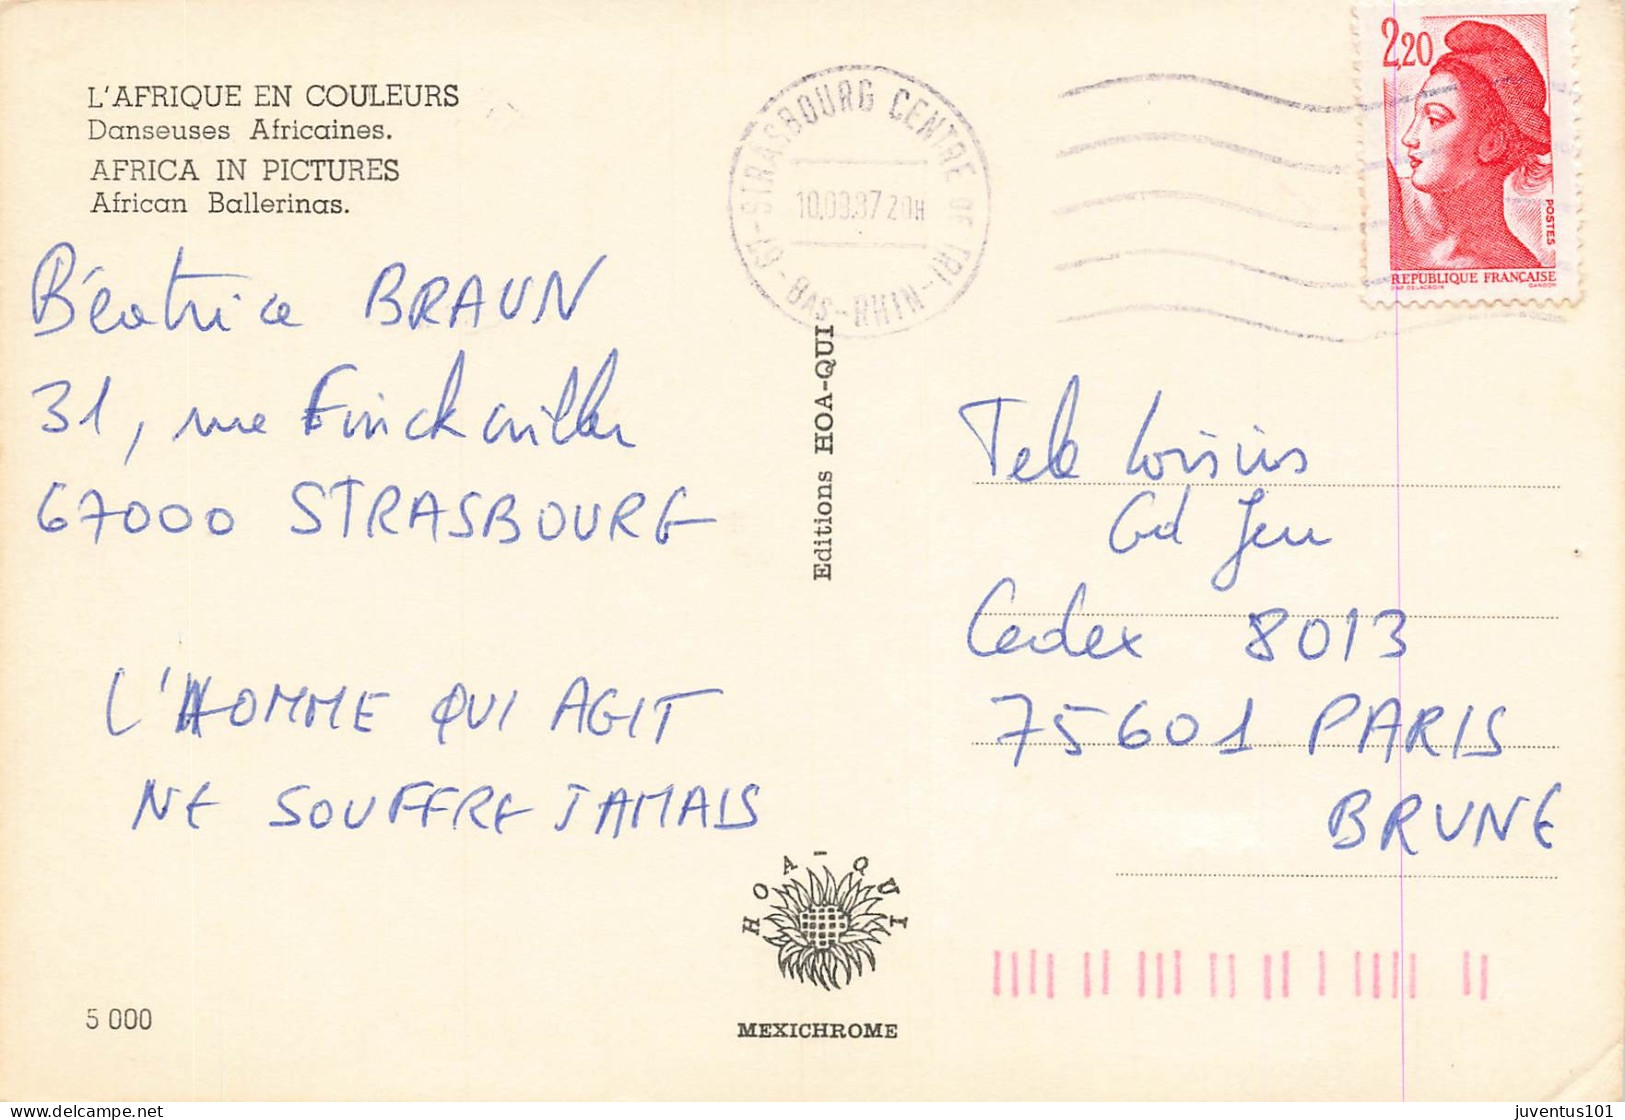 L'AFRIQUE EN COULEURS
Danseuses Africaines.
AFRICA IN PICTURES
African Ballerinas.
67-STRASBOURG CENTRE DE TRI-BAS-RHIN-
10.08.87 20H
2,20
POSTES
REPUBLIQUE FRANÇAISE
D'AP. DELACROIX GANDON
Béatrice BRAUN
31, rue Finckwiller
67000 STRASBOURG
L'HOMME QUI AGIT
NE SOUFFRE JAMAIS
Editions HOA-QUI
Tele Loisirs
Gd Jeu
Cedex 8013
75601 PARIS
BRUNE
HOA-QUI
MEXICHROME
5 000
delcampe.net
juventus101